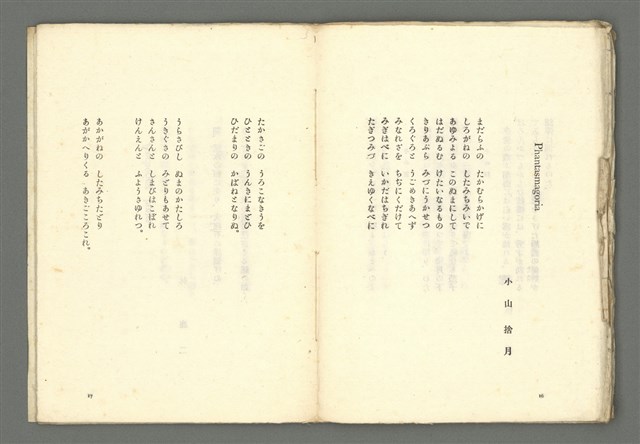 Phantasmagoria
小山捨月
まだらふの たかむらかげに
しろがねの したみちみいで
あゆみよる このぬまにして
はだぬるむ けたいなるもの
きりあぶら みづにうかせつ
くろぐろと うごめきあへず
みなれざを ちぢにくだけて
みぎはべに いかだはちぎれ
たぎつみづ きえゆくなべに
16
たかさごの うろこなきうを
ひとときの うんきにまどひ
ひだまりの かばねとなりぬ。
うらさびし ぬまのかたしろ
うきぐさの みどりもあせて
さんさんと しまびはこぼれ
けんえんと ふようさゆれつ。
あかがねの したみちたどり
あがかへりくる あきごころこれ。
17